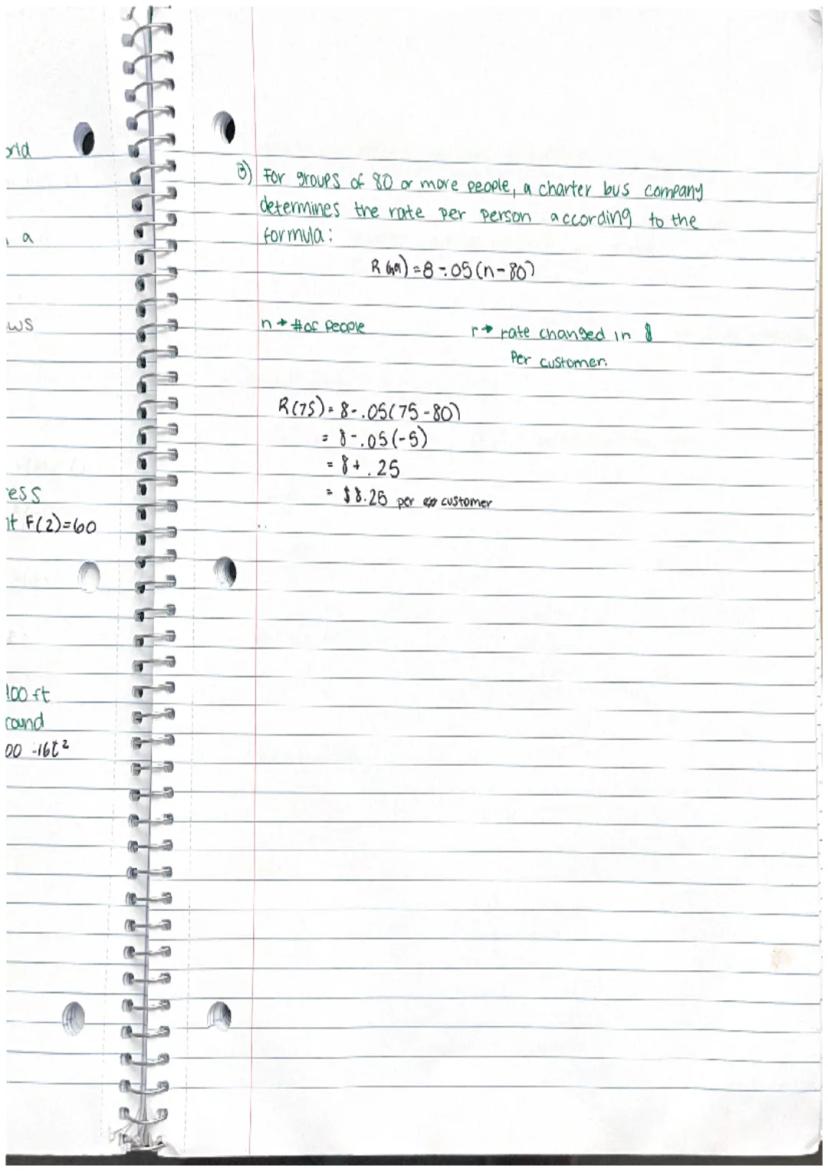 orld
, a
ws
ess
t F(2)=60
100 ft
round
00 -16t²
3) For groups of 80 or more people, a charter bus company
determines the rate per person according to the
formula:
R(n) = 8 -.05(n-80)
n → # of people
r → rate changed in $
Per customer.
R(75) = 8-.05(75-80)
= 8-.05(-5)
= 8+.25
= $8.25 per customer